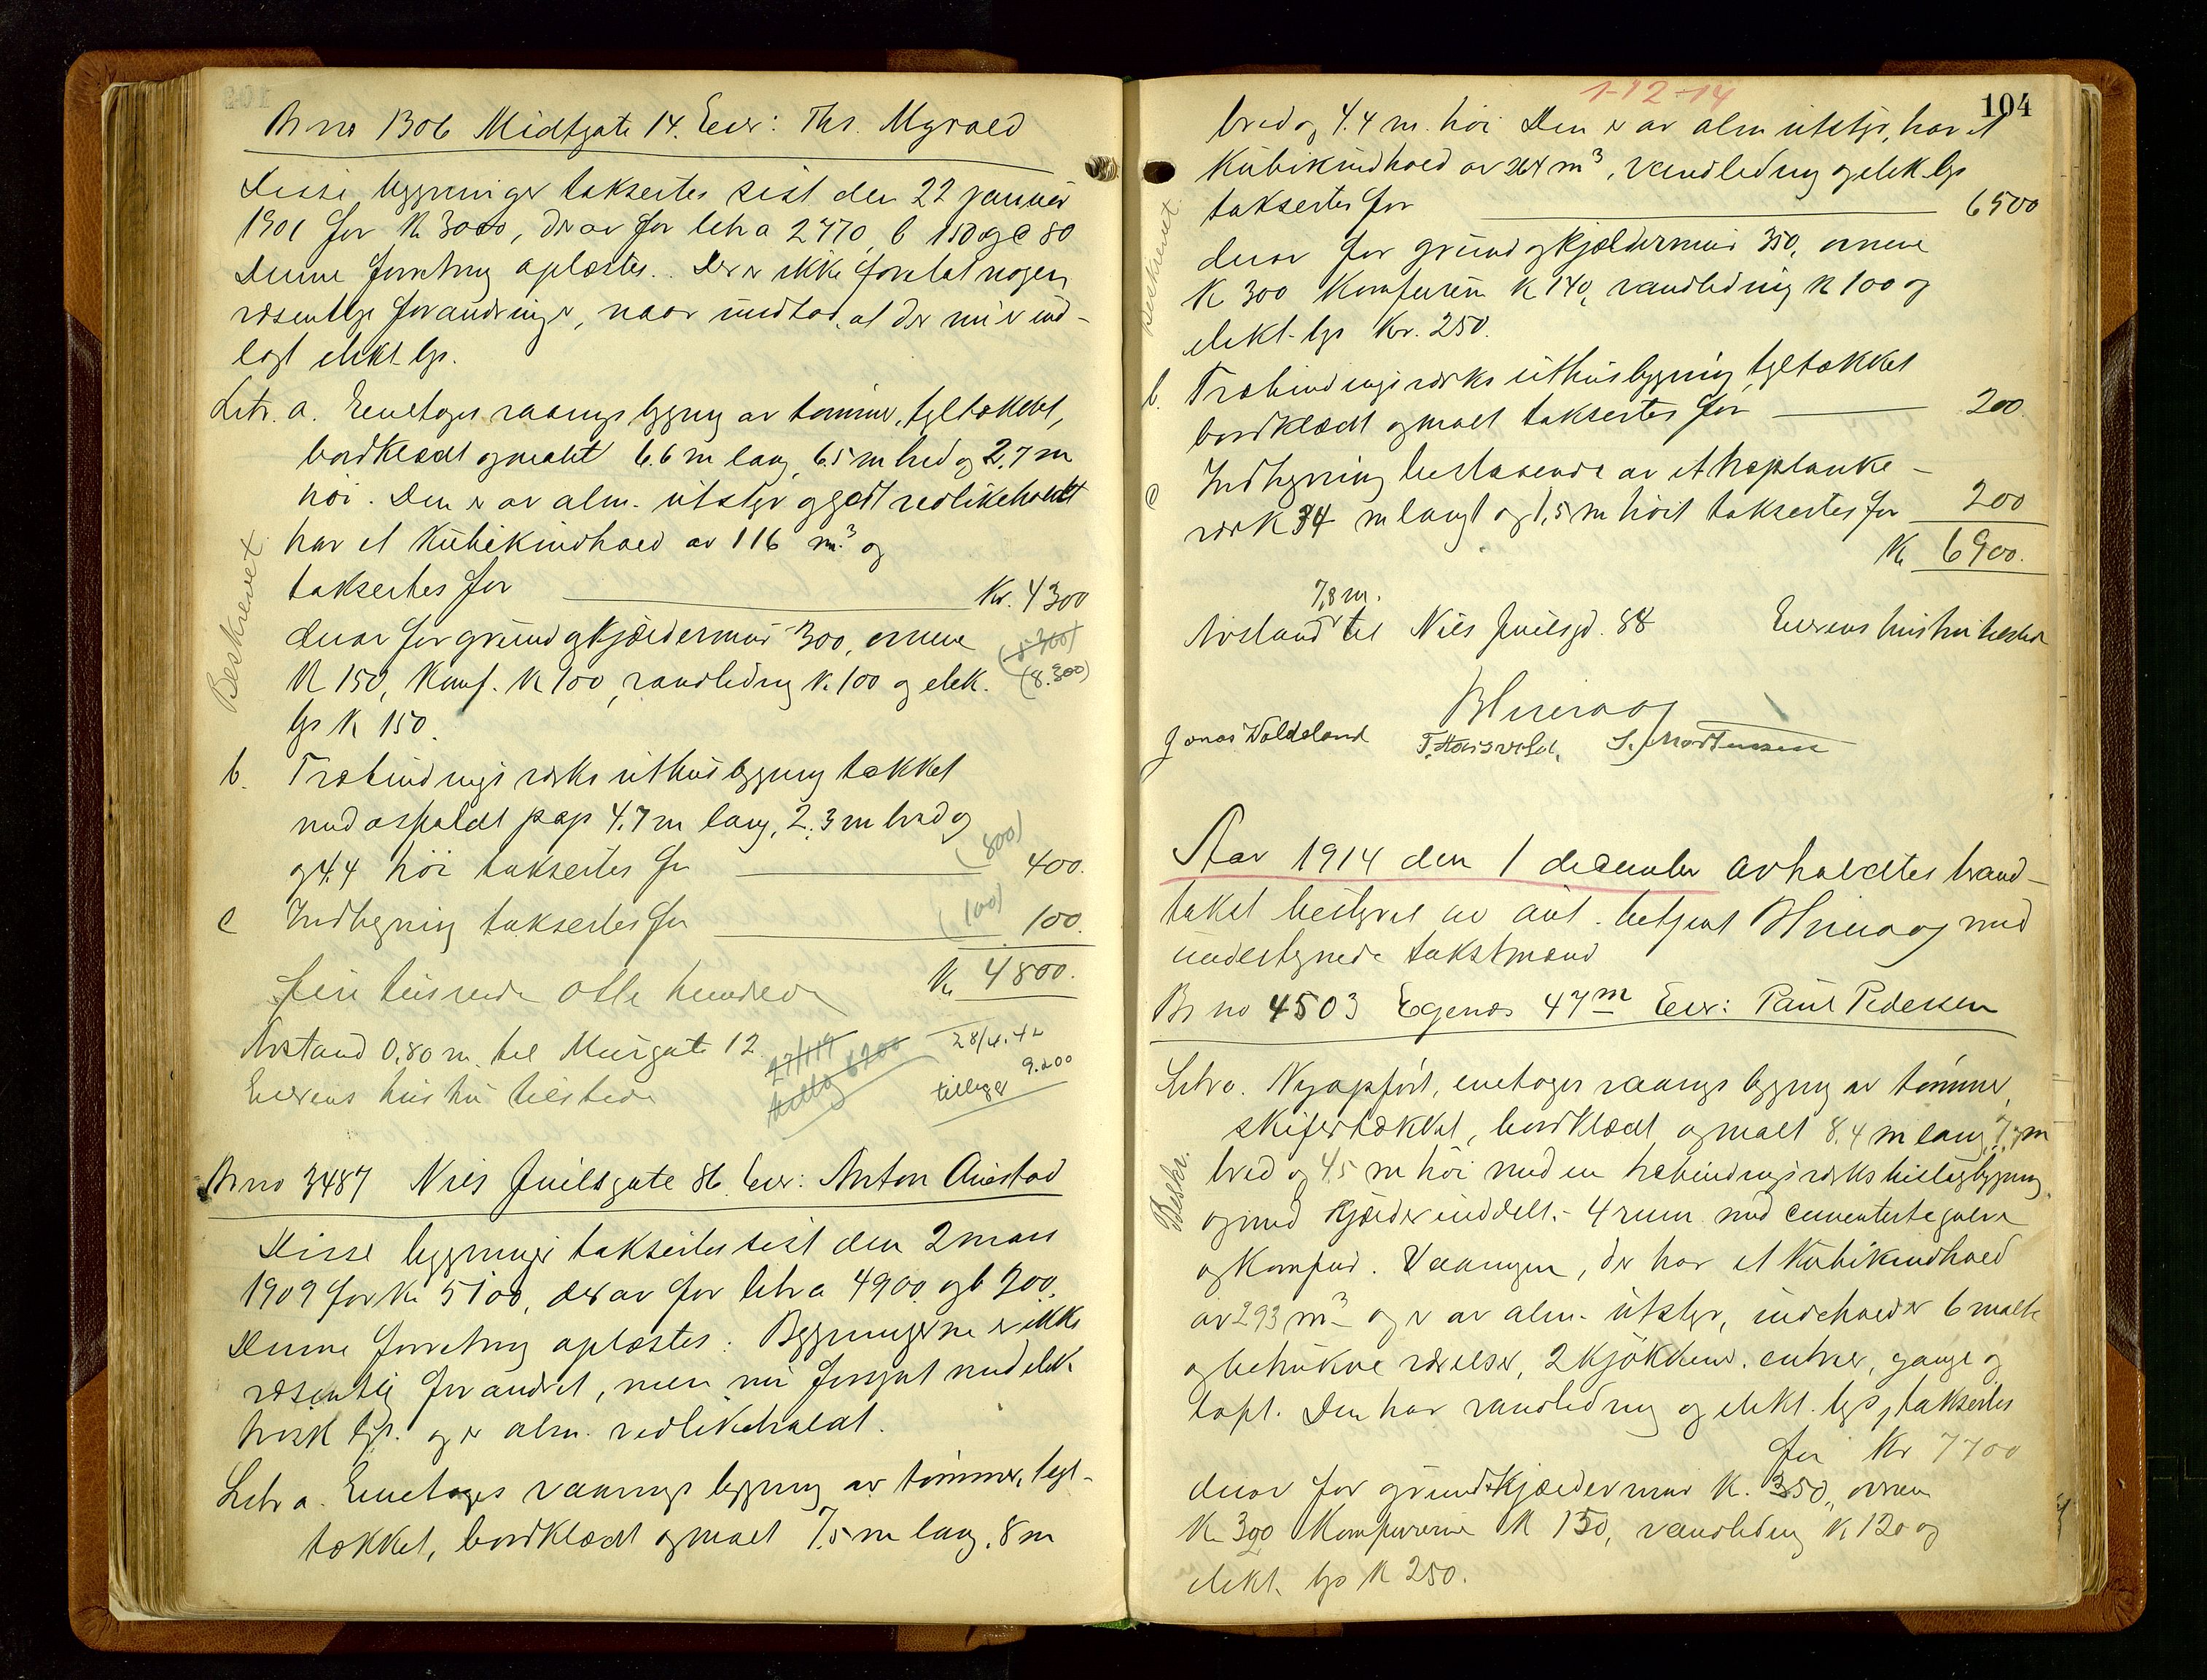 Br no 1306 Midtgate 14. Eier: Ths. Myrvold
Disse bygninger taksertes sist den 22 januar
1901 for Kr 3000, derav for letr a 2770, b 150 og c 80
Denne forretning oplæstes. Der er ikke foretat nogen
væsentlige forandringer, naar undtas, at der nu er ind-
lagt elekt. lys.
Litr. a. Enetages vaanings bygning av tømmer, tegltækket,
bordklædt og malt 6.6 m lang, 6.5 m bred og 2.7 m
høi. Den er av alm. utstyr og godt vedlikeholdt
har et Kubikindhold av 116 m³ og
taksertes for Kr. 4300
derav for grund og kjældermur 300, ovnene
K 150, Komf. K 100, vandledning K. 100 og elek.
lys K 150.
(8.300)
Beskrevet
b. Træbindingsverks uthusbygning tækket
med asfaldt pap 4.7 m lang, 2.3 m bred og
og 4.4 høi taksertes for 400.
(800)
c Indhegning taksertes for 100.
(100)
Kr 4800.
fire tusinde otte hundrede
Avstand 0.80 m. til Murgate 12.
Eierens hustru tilstede
28/4.42
9.200
tillæger
Br no 3487 Niels Juelsgate 86. Eier: Anton Auestad
Disse bygninger taksertes sist den 2 mars
1909 for Kr 5100, derav for letr a 4900 og b 200.
Denne forretning oplæstes. Bygningerne er ikke
væsentlig forandret, men nu forsynt med elek-
trisk lys. og er alm. vedlikeholdt.
Letr a. Enetages vaanings bygning av tømmer, tegl-
tækket, bordklædt og malt 7.5 m lang, 8 m
1-12-14
104
bred og 4.4 m. høi. Den er av alm utstyr, har et
Kubikindhold av 264 m³, vandledning og elek. lys
taksertes for 6500
derav for grund og kjældermur 350, ovnene
K 300 Komfuren K 140, vandledning K 100 og
elekt. lys Kr. 250.
Beskrevet
b. Træbindingsverks uthusbygning, tegltækket
bordklædt og malt taksertes for 200.
c Indhegning bestaaende av et træplanke-
verk 34 m langt og 1,5 m høit taksertes for 200
Kr 6900.
7,8 m.
Avstand til Niels Juelsgt. 88 Eierens hustru tilstede
Jonas Voldeland S. Mortensen
Aar 1914 den 1 december avholdtes brand-
takst bestyret av aut. betjent med
undertegnede takstmænd
Br no 4503 Egenes 47m Eier: Paul Pedersen
Letr a. Nyopført, enetages vaanings bygning av tømmer,
skifertækket, bordklædt og malt 8.4 m lang, 7,7 m
bred og 4.5 m høi med en træbindingsverks tilbygning
og med kjælder inddelt i 4 rum med cementerte gulve
og Komfur. Vaaningen, der har et Kubikindhold
av 293 m³ og er av alm. utstyr, indeholder 6 malte
og betrukne værelser, 2 kjøkkener, entreer, gange og
lopt. Den har vandledning og elekt. lys, taksertes
for Kr 7700
derav for grund & kjældermur K. 350, ovnene
K 300 Komfurerne K 150, vandledning K 120 og
elekt. lys K 250.
Beskr.